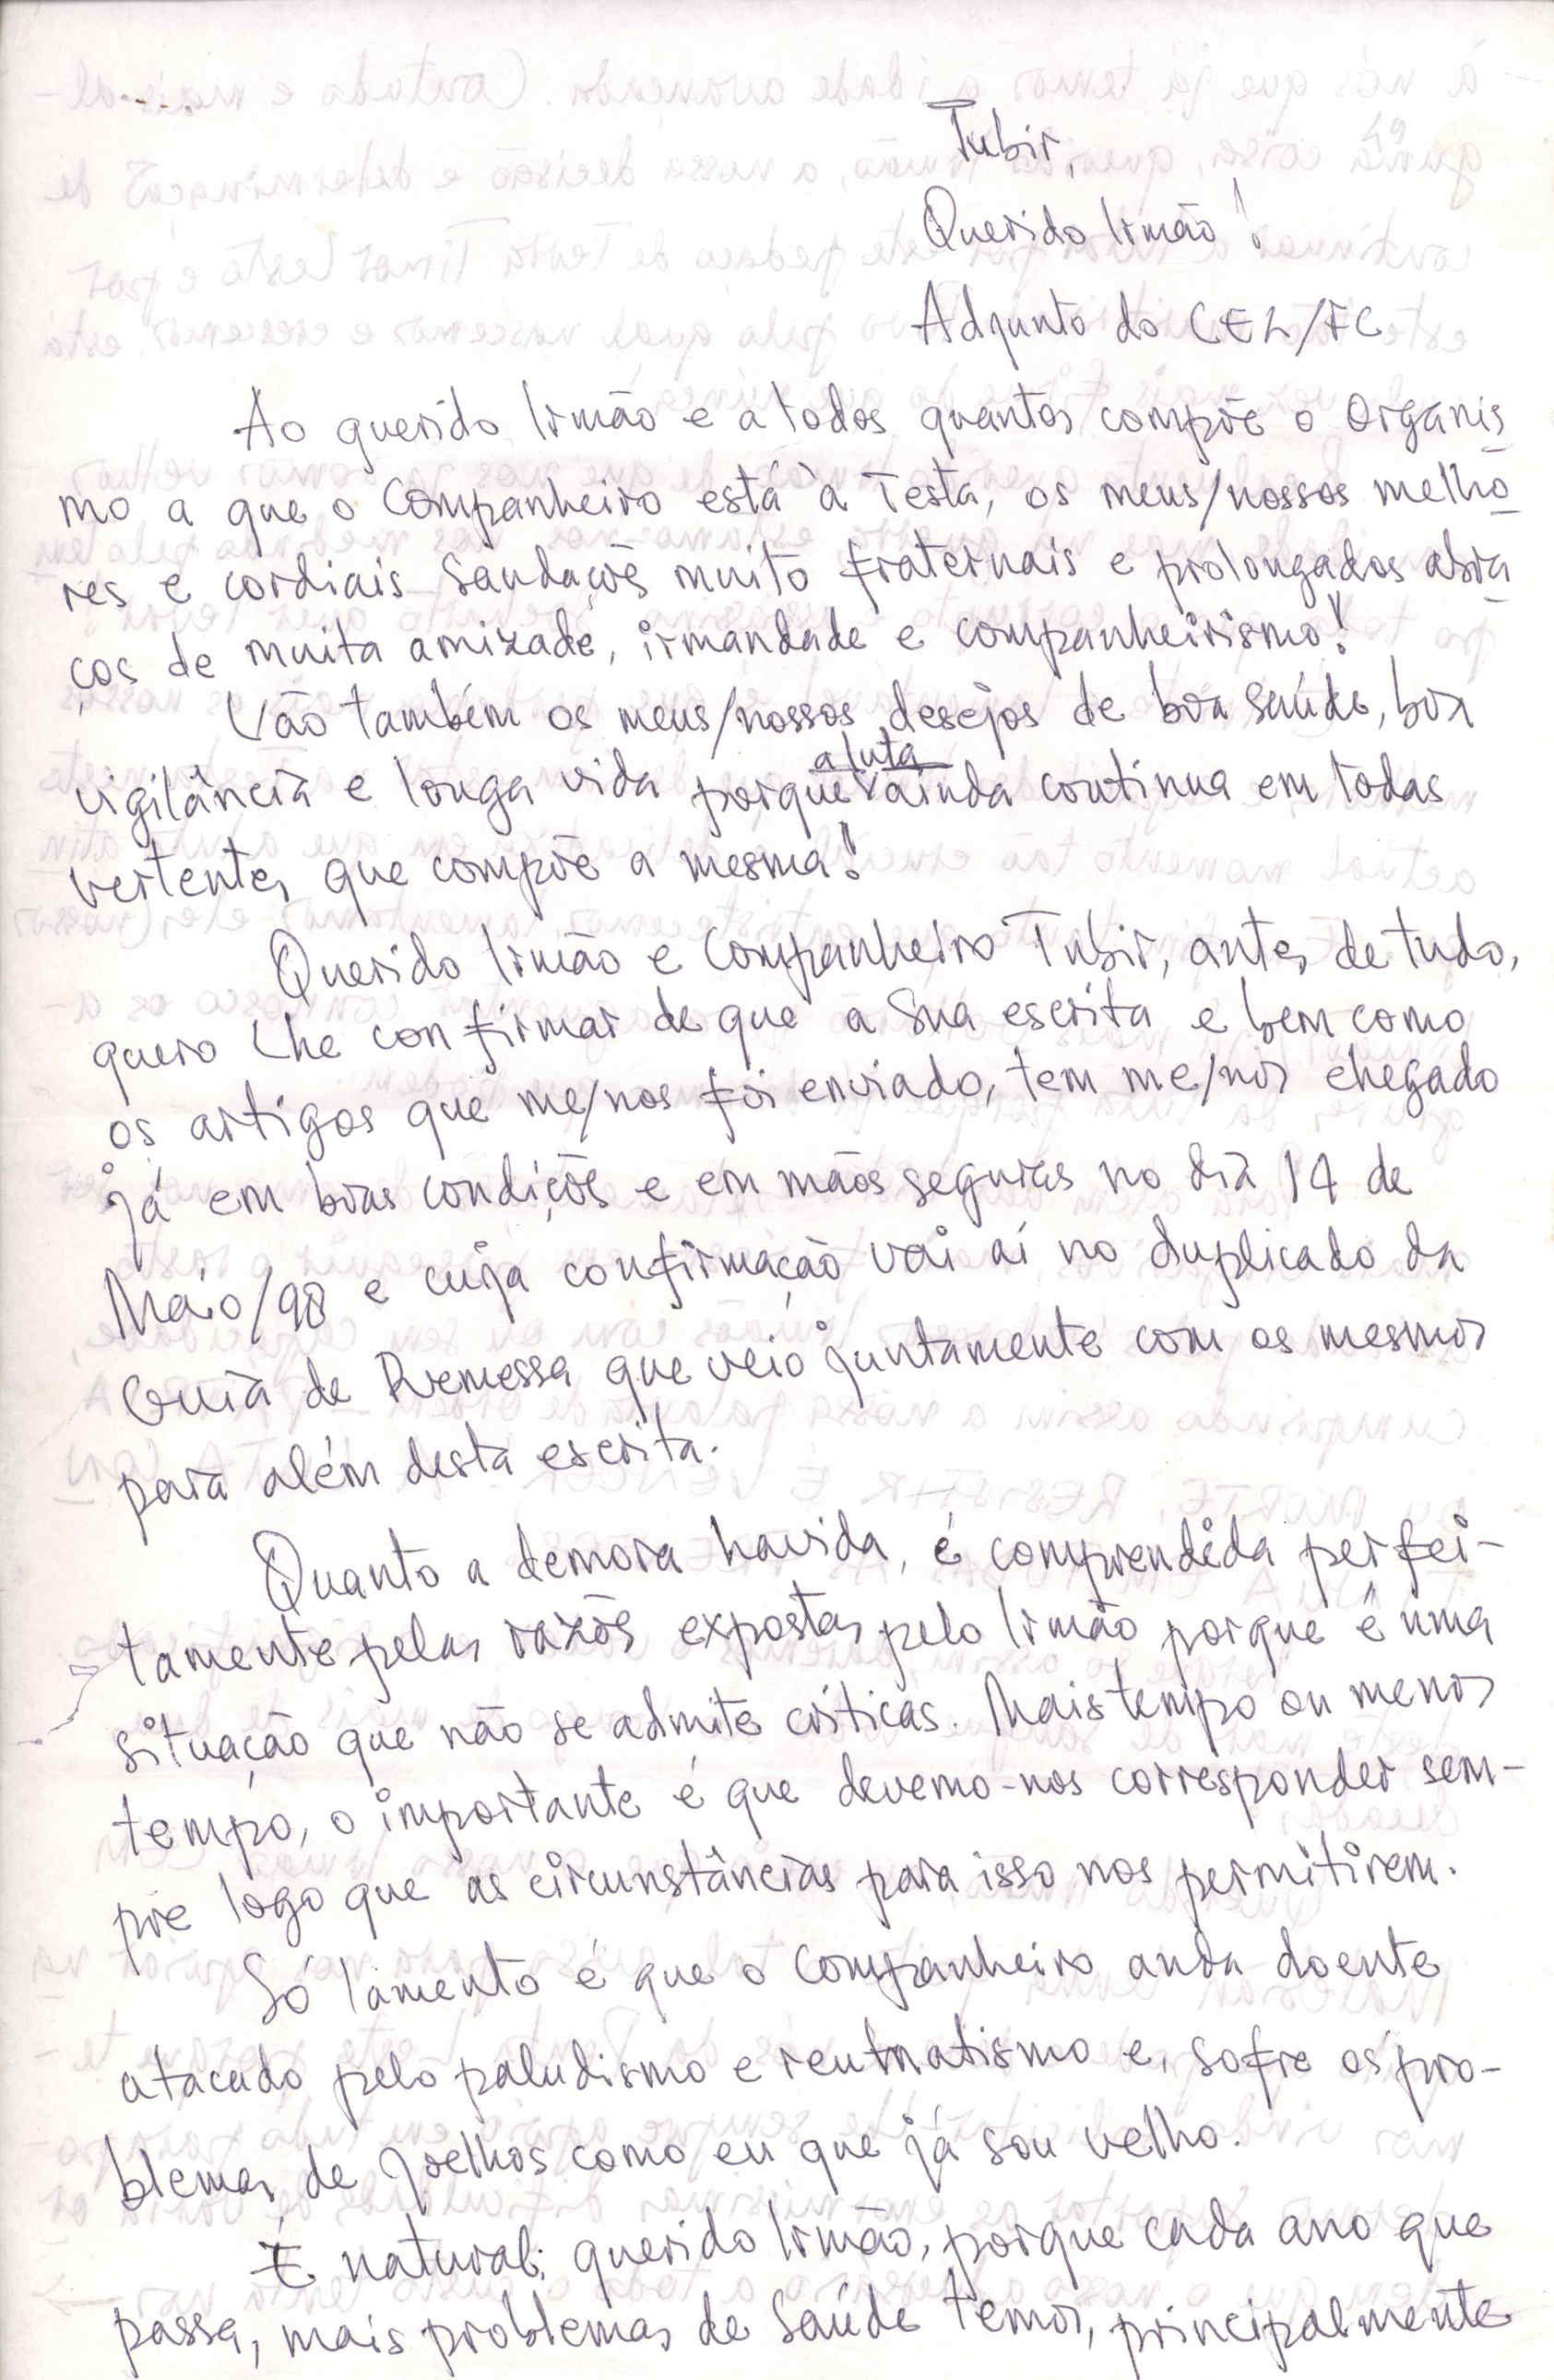 Tubir,
Querido Irmão!
Adjunto do CEL/FC
Ao querido Irmão e a todos quantos compõe o Organis
mo a que o Companheiro está à Testa, os meus/nossos melho
res e cordiais Saudações muito fraternais e prolongados abra
ços de muita amizade, irmandade e companheirismo!
Vão também os meus/nossos desejos de boa Saúde, boa
vigilância e longa vida porque a luta ainda continua em todas
vertentes que compõe a mesma!
Querido Irmão e Companheiro Tubir, antes de tudo,
quero Lhe confirmar de que a Sua escrita e bem como
os artigos que me/nos foi enviado, tem me/nos chegado
já em boas condições e em mãos seguras no dia 14 de
Maio/98 e cuja confirmação vai aí no duplicado da
Guia de Remessa que veio juntamente com os mesmos
para além desta escrita.
Quanto a demora havida, é comprendida perfei-
tamente pelas razões expostas pelo Irmão porque é uma
situação que não se admite críticas. Mais tempo ou menos
tempo, o importante é que devemo-nos corresponder sem-
pre logo que as circunstâncias para isso nos permitirem.
Só lamento é que o Companheiro anda doente
atacado pelo paludismo e reumatismo e, sofre os pro-
blemas de Joelhos como eu que já sou velho.
É natural, querido Irmão, porque cada ano que
passa, mais problemas de Saúde temos, principalmente